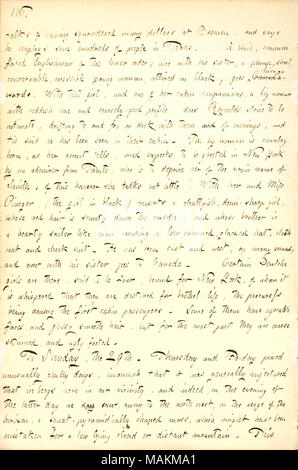 116.
talks of having squandered many dollars at Bremen, and says
he employs some hundreds of people in Texas. A civil, common
faced Englishman of the lower order, also with his sister, a plump, silent,
conversable, amiable young woman, attired in black, goes Canada-
wards. With this girl, and one of her cabin companions, a big woman
with reddish hair and comely good profile does Reynolds strive to be
intimate, drifting to and fro on deck with them both of evenings, and
tis said he has been seen in their cabin. The big woman is country-
born, as her accent tells, and expects to be greeted in New York
by an admirer from Toronto, who is to deprive her of the virgin name of
Smith; of this however she talks not little. With her and Miss
, (the girl in black,) consorts a sleattish, demi-sharp girl,
whose red hair is scanty down the middle; and whose brother is
a hearty sailor like man wearing a low-crowned glazed hat, cloth
coat and check suit. He has been east and west, on many seas,
and now with his sister goes to Canada. Certain Deutsche
girls are there, said to be four, bound for New York, of whom it
is whispered that they are destined for brothel life, the procuress
being among the first cabin passengers. Some of them have agreeable
faces and good smooth hair, but for the most part they are coarse
skinned and ugly footed.
To Sunday, the 29th. Thursday and Friday proved
unusually chilly days, insomuch that it was generally conjectured
that icebergs were in our vicinity and indeed, on the evening of
the latter day we saw away to the north west, on the verge of the
horizon, a squat, pyramidically shaped mass, which might have been
mistaken for a low lying cloud or distant mountain. This